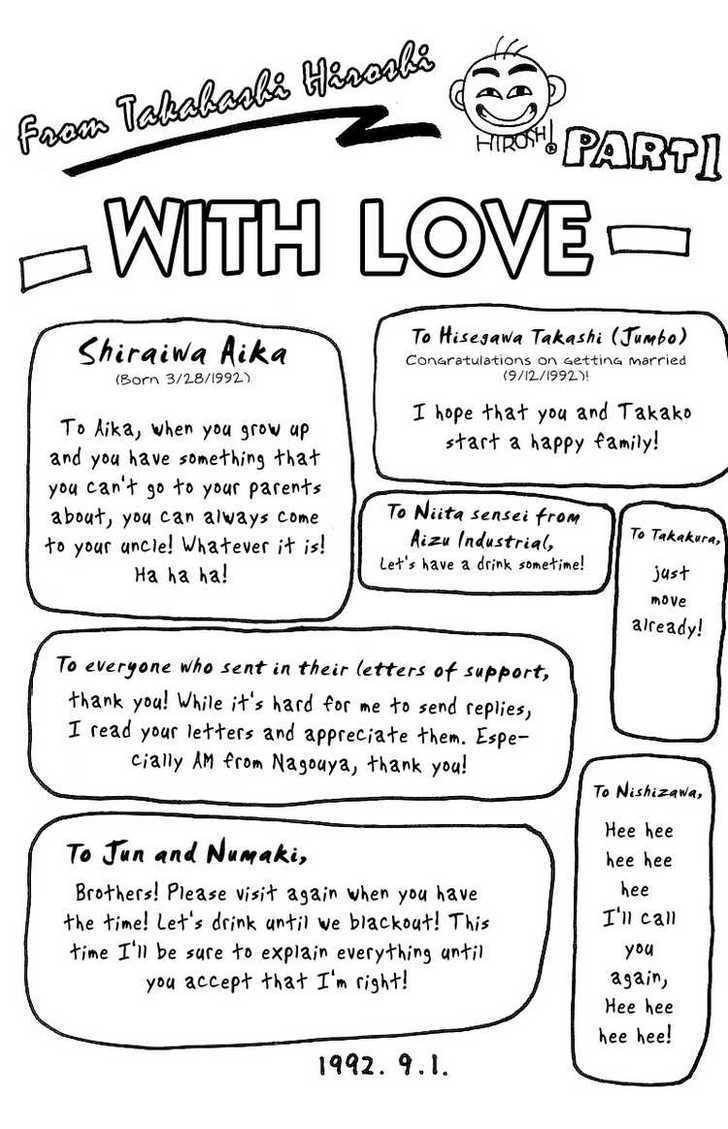 From Takahashi Hiroshi
HIROSHI!
PART 1
WITH LOVE
Shiraiwa Aika
(Born 3/28/1992)
To Aika, when you grow up
and you have something that
you can't go to your parents
about, you can always come
to your uncle! Whatever it is!
Ha ha ha!
To Hisegawa Takashi (Jumbo)
Congratulations on getting married
(9/12/1992)!
I hope that you and Takako
start a happy family!
To Niita sensei from
Aizu Industrial,
Let's have a drink sometime!
To Takakura,
just
move
already!
To everyone who sent in their letters of support,
thank you! While it's hard for me to send replies,
I read your letters and appreciate them. Espe-
cially AM from Nagouya, thank you!
To Nishizawa,
Hee hee
hee hee
hee
I'll call
you
again,
Hee hee
hee hee!
To Jun and Numaki,
Brothers! Please visit again when you have
the time! Let's drink until we blackout! This
time I'll be sure to explain everything until
you accept that I'm right!
1992. 9.1.